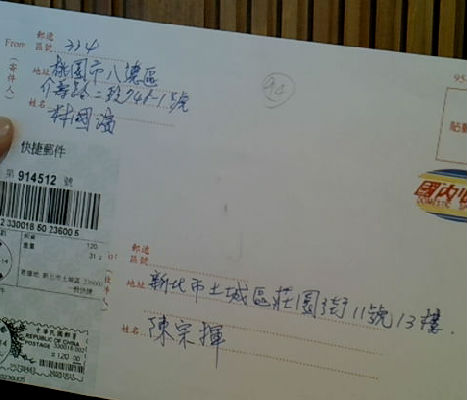 From 郵遞區號 334
(寄件人)
地址 桃園市八德區
介壽路二段941-1號
姓名 林國
94
95
貼郵
快捷郵件
第 914512 號
2 330018 50 23600 5
重量 120
寄達地: 新北市土城區 236600
國內
DOMESTIC
郵遞區號
地址 新北市土城區莊園街11號13樓
姓名 陳宗揮
REPUBLIC OF CHINA
POSTAGE 330018.00
120.00